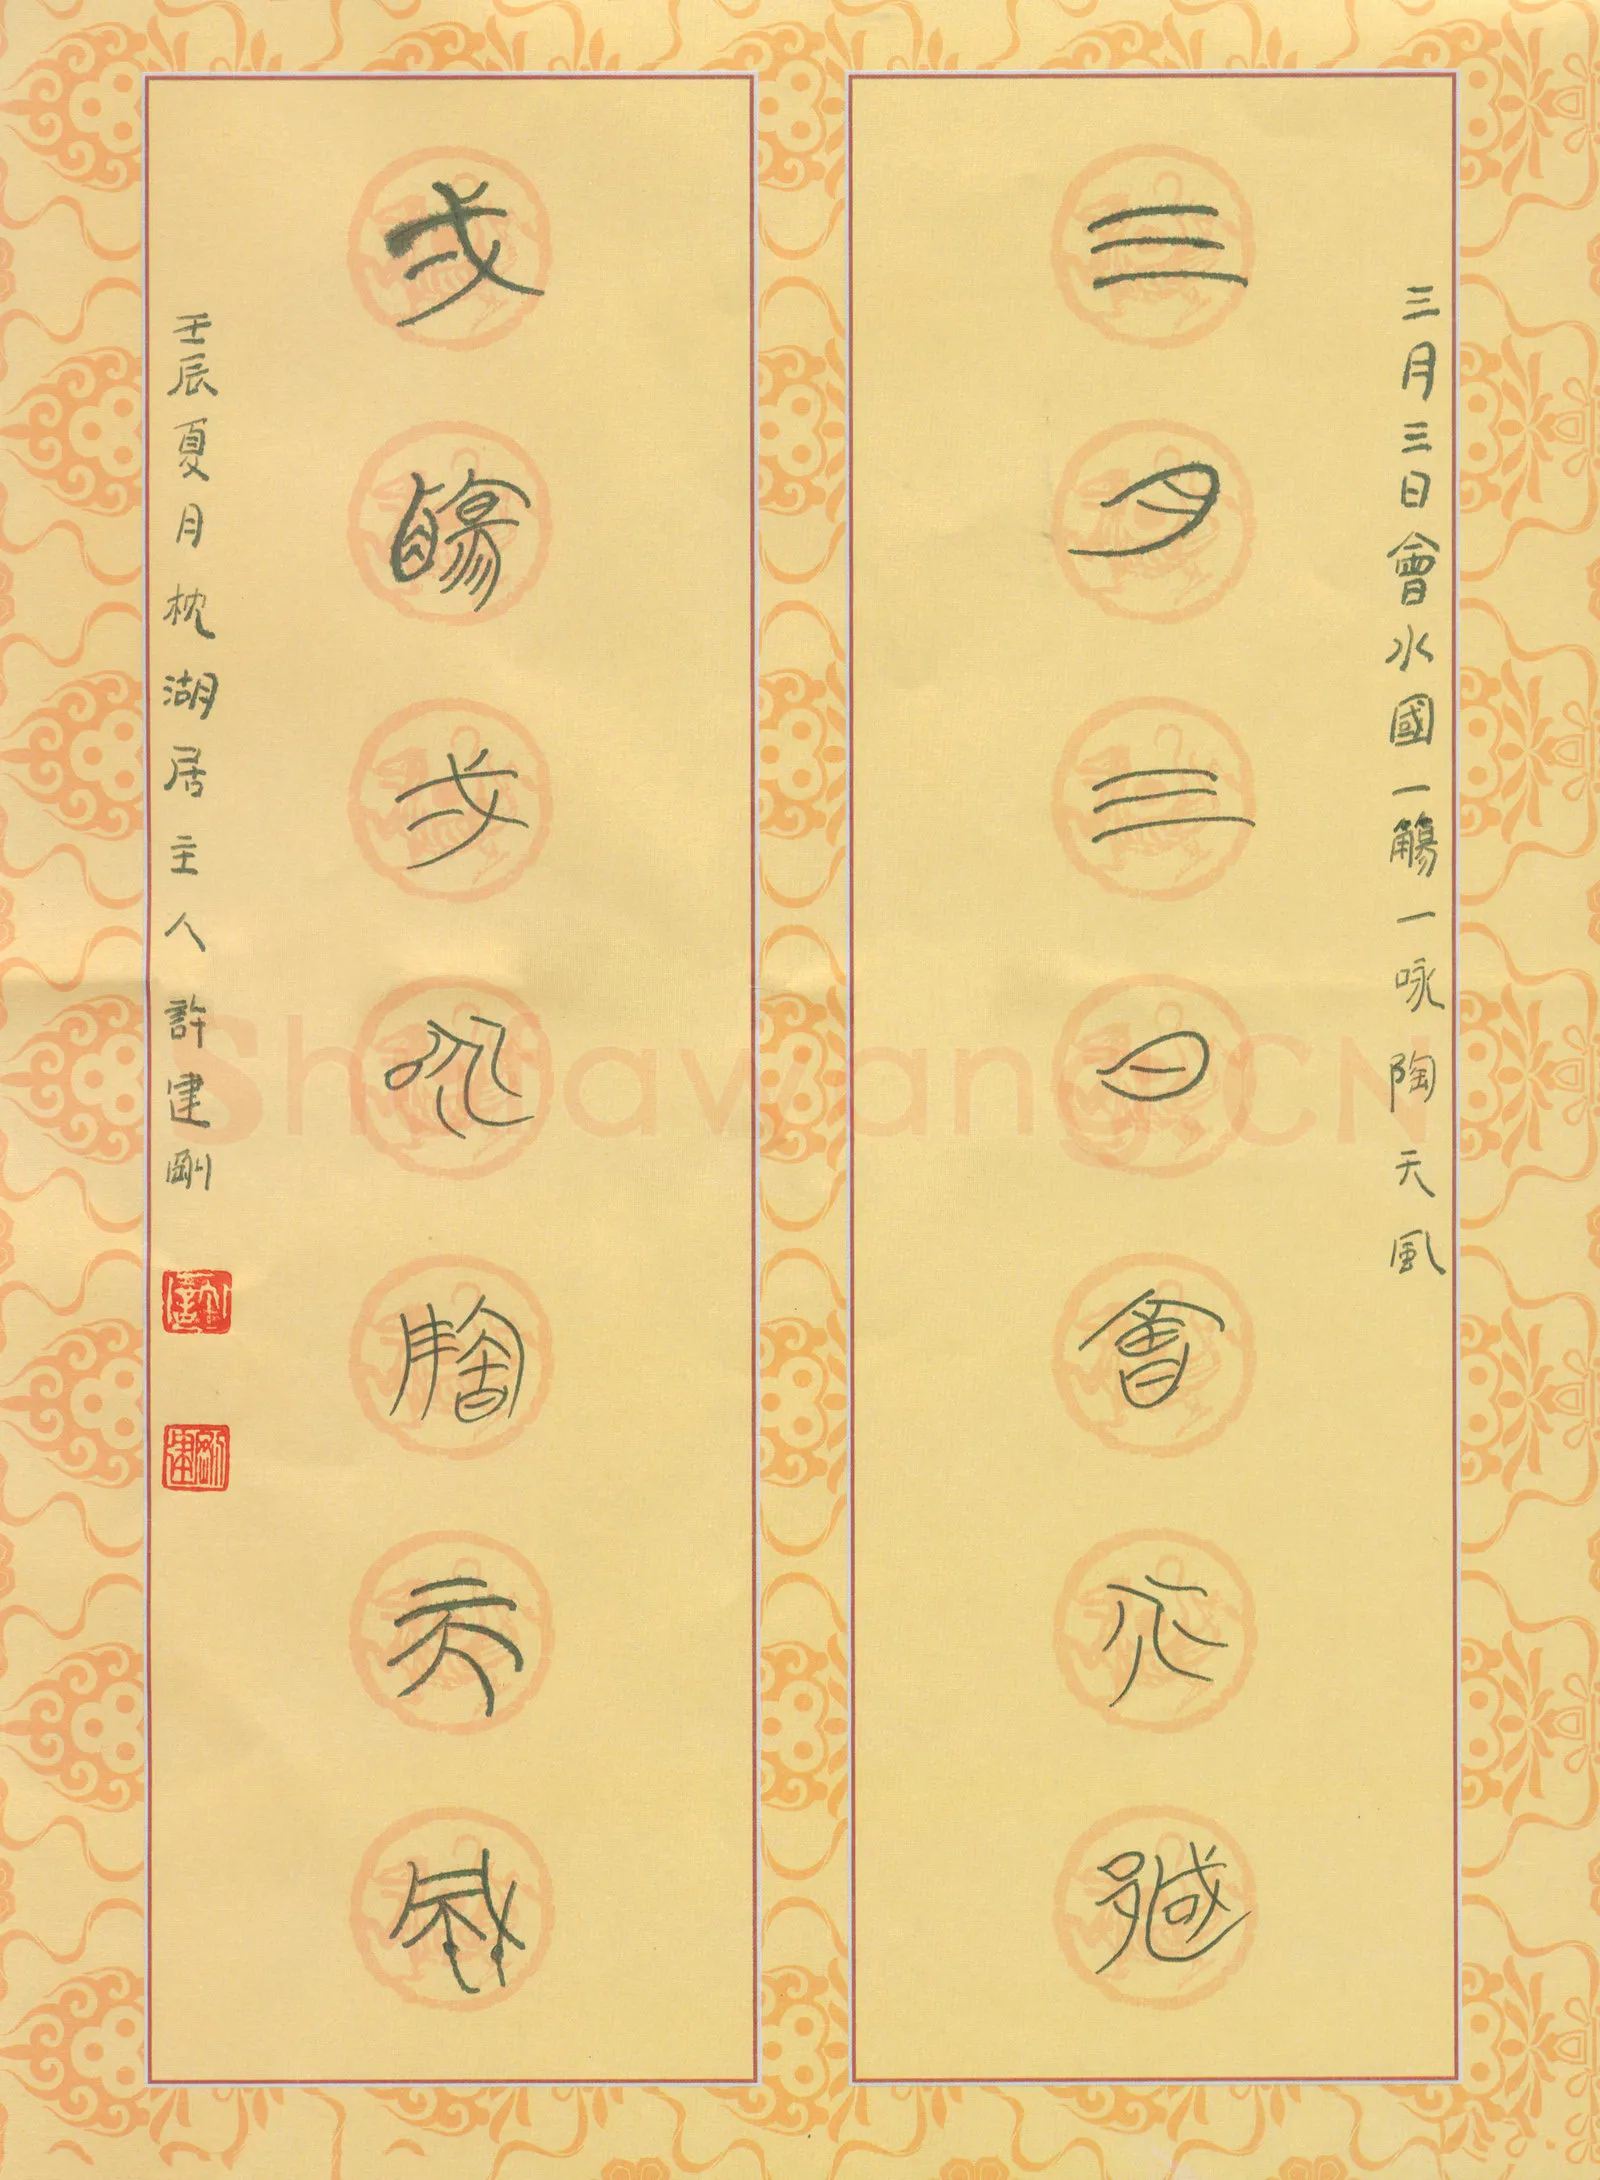 三月三日會水國一觴一咏陶天風
三月三日會水國
弌觴弌咏陶天風
壬辰夏月枕湖居主人許建剛
建剛
Shufawang.CN